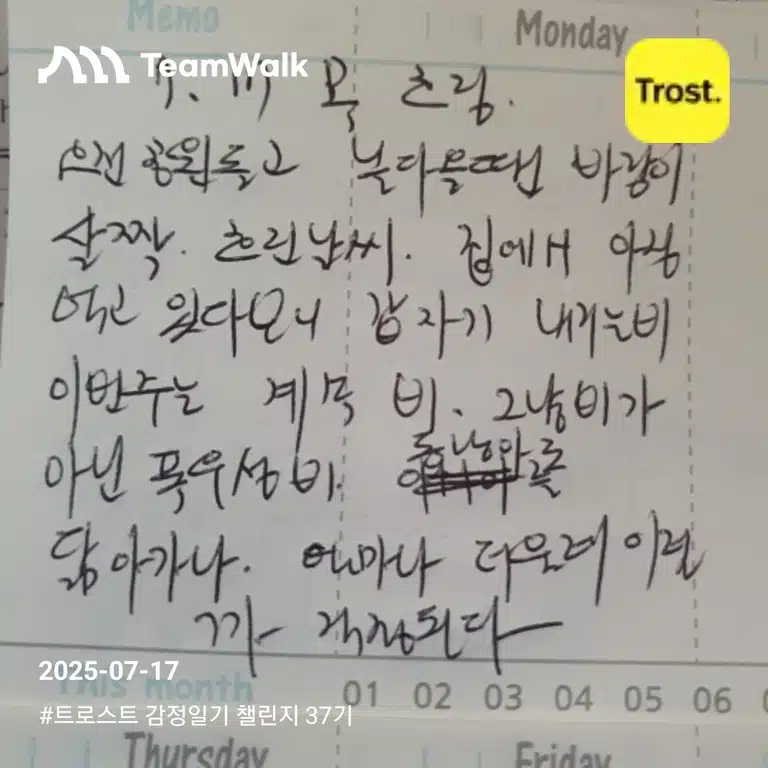 Memo
Monday
TeamWalk
Trost.
7. 17 목 흐림.
오전 공원돌고 날다을땐 바람이
살짝. 흐린날씨. 집에서 아침
먹고 있다보니 갑자기 내리는비
이번주는 계속 비. 그냥비가
아닌 폭우성비. 동남아를
닮아가나. 얼마나 더울려 이런
가 걱정된다
2025-07-17
This month 01 02 03 04 05 06
#트로스트 감정일기 챌린지 37기
Thursday
Friday